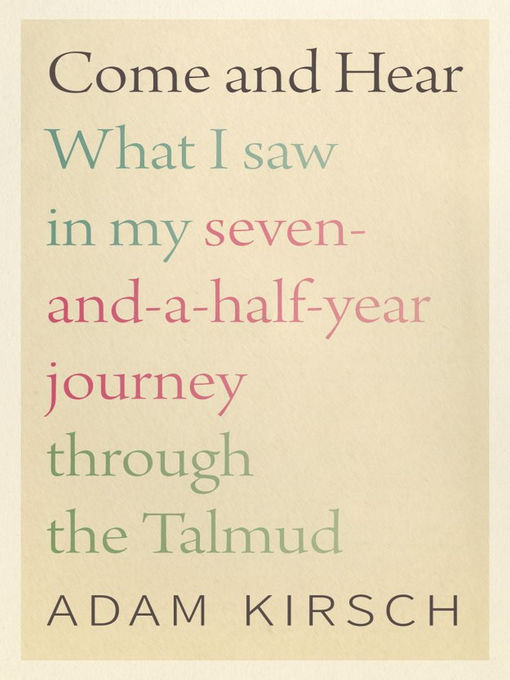 Come and Hear
What I saw
in my seven-
and-a-half-year
journey
through
the Talmud
ADAM KIRSCH